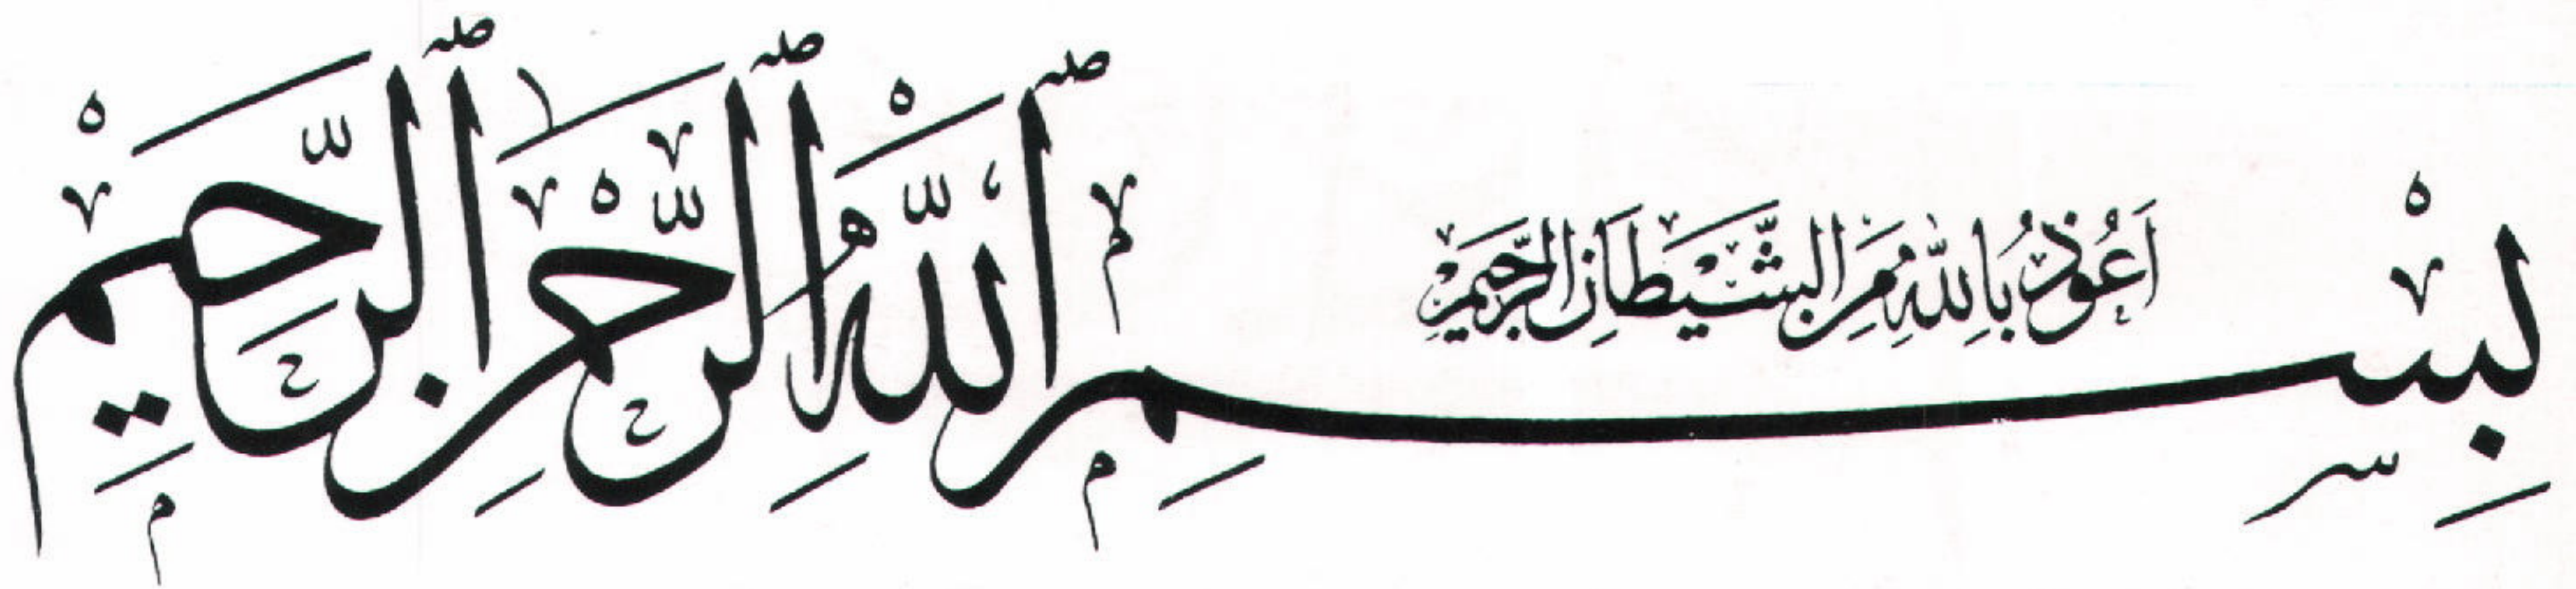 اَعُوذُ بِاللّٰهِ مِنَ الشَّيْطَانِ الرَّجِيمِ
بِسْمِ اللّٰهِ الرَّحْمٰنِ الرَّحِيمِ